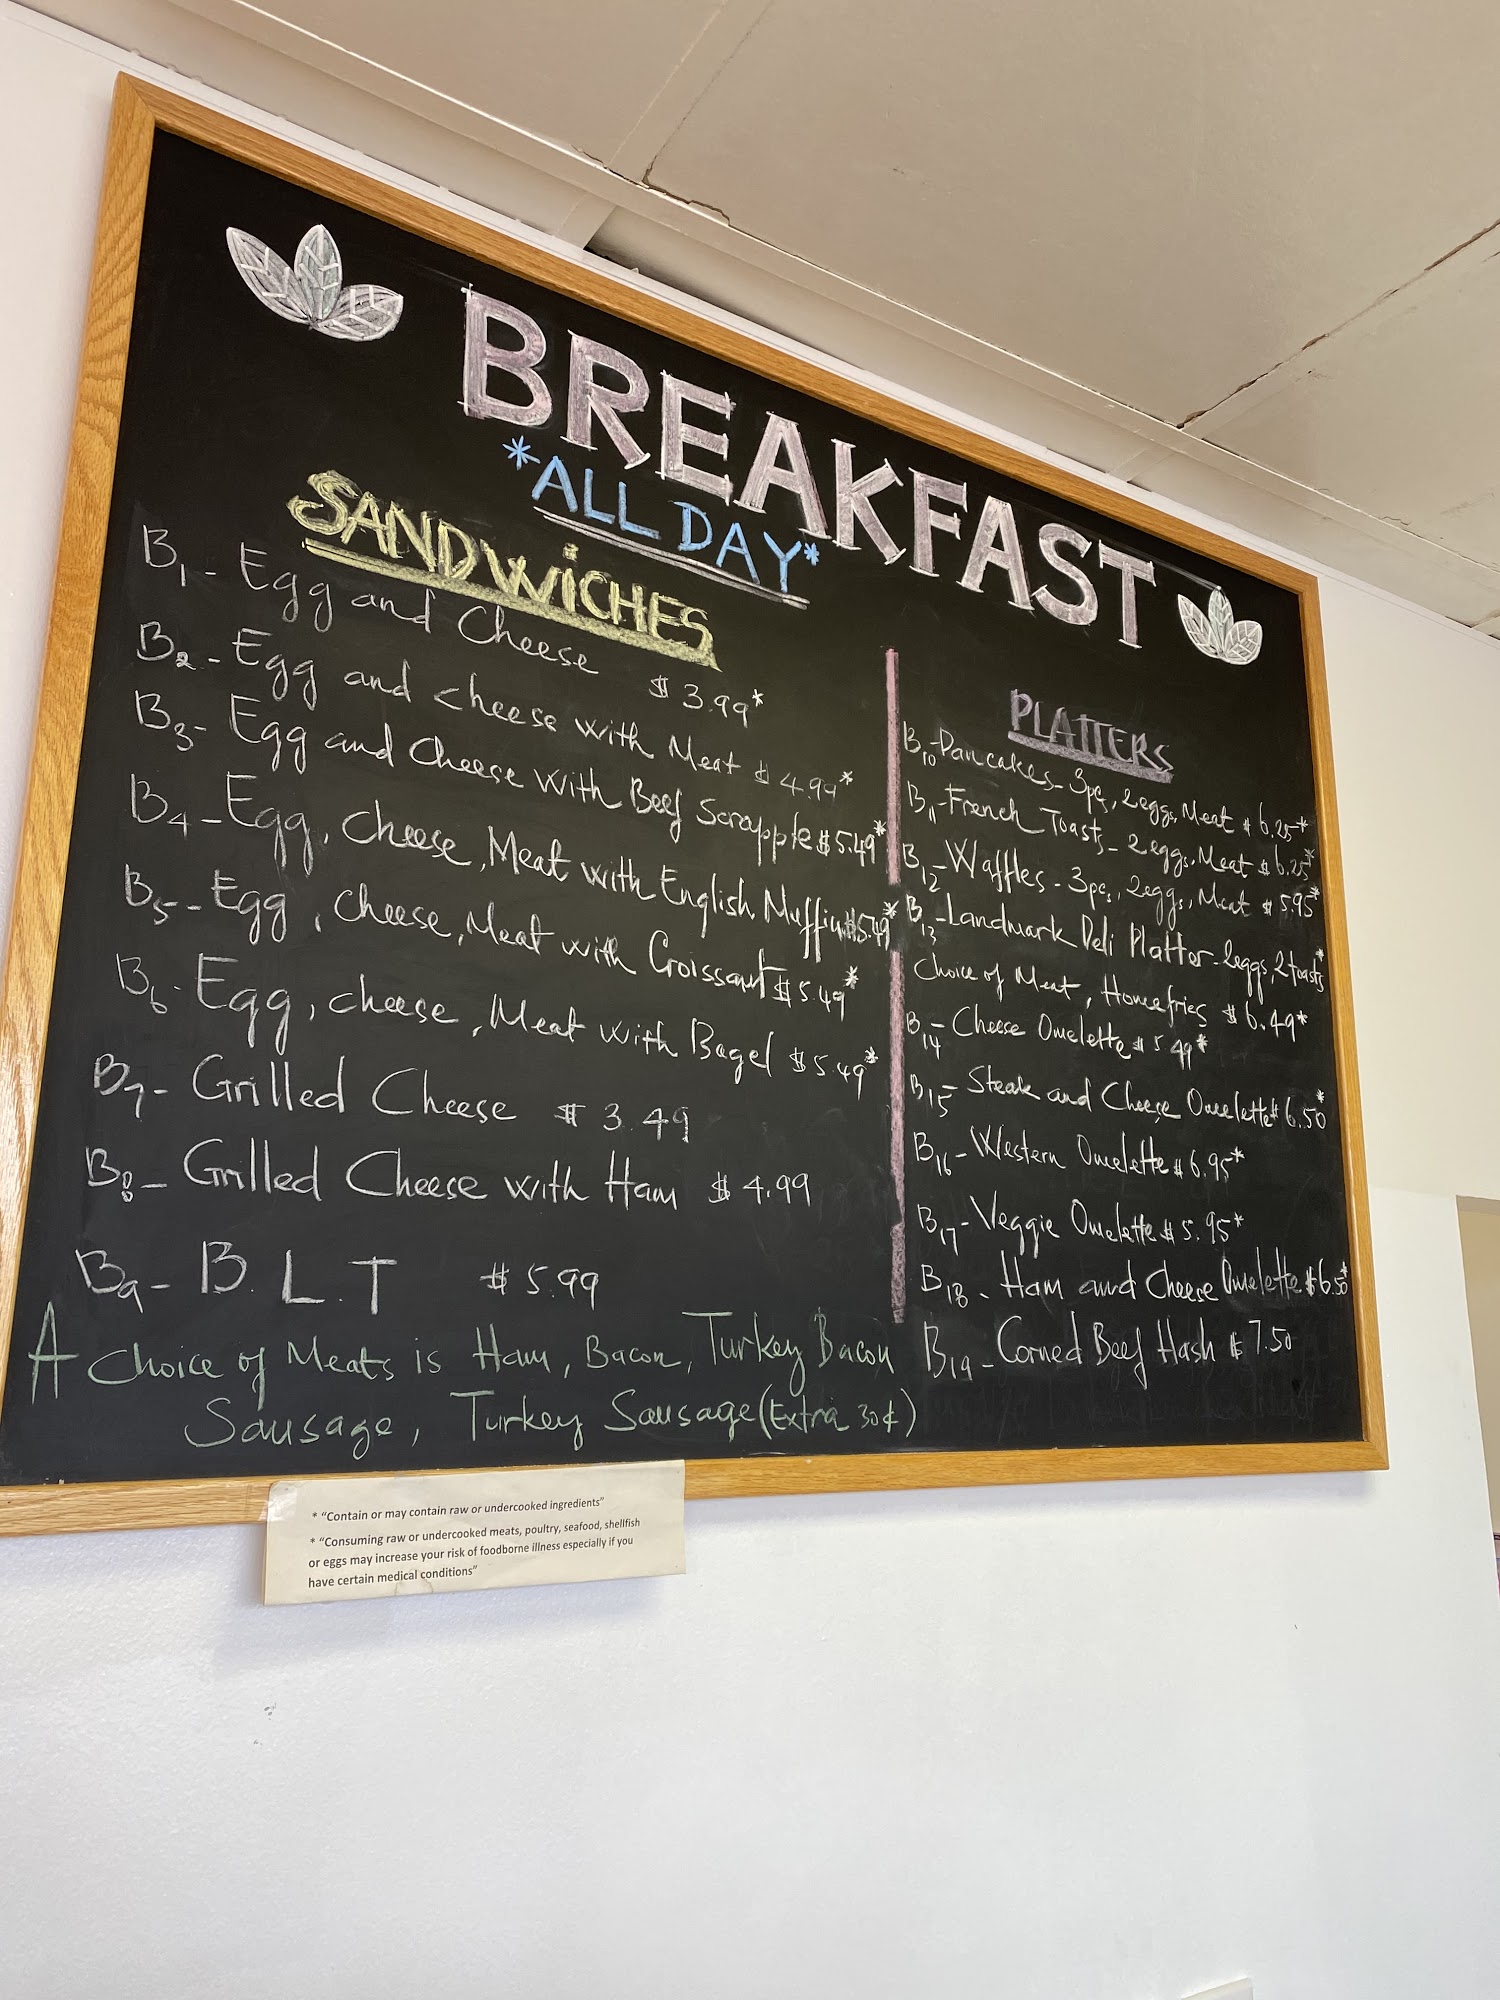 BREAKFAST
*ALL DAY*
SANDWiCHES
B1- Egg and Cheese $ 3.99*
B2- Egg and cheese with Meat $ 4.99*
B3- Egg and Cheese with Beef Scrapple $5.49*
B4- Egg, Cheese, Meat with English Muffin $5.49*
B5- Egg, Cheese, Meat with Croissant $5.49*
B6- Egg, cheese, Meat with Bagel $5.49*
B7- Grilled Cheese $ 3.49
B8- Grilled Cheese with Ham $ 4.99
B9- B.L.T $ 5.99
A Choice of Meats is Ham, Bacon, Turkey Bacon
Sausage, Turkey Sausage (Extra 30¢)
PLATTERS
B10-Pancakes- 3pcs, 2eggs, Meat $ 6.25*
B11-French Toasts- 2eggs, Meat $ 6.25*
B12-Waffles- 3pcs, 2eggs, Meat $ 5.95*
B13-Landmark Deli Platter-2eggs, 2toasts*
Choice of Meat, Homefries $ 6.49*
B14- Cheese Omelette $ 5.49*
B15- Steak and Cheese Omelette $ 6.50*
B16-Western Omelette $ 6.95*
B17-Veggie Omelette $ 5.95*
B18- Ham and Cheese Omelette $6.50*
B19- Corned Beef Hash $ 7.50
* "Contain or may contain raw or undercooked ingredients"
* "Consuming raw or undercooked meats, poultry, seafood, shellfish
or eggs may increase your risk of foodborne illness especially if you
have certain medical conditions"